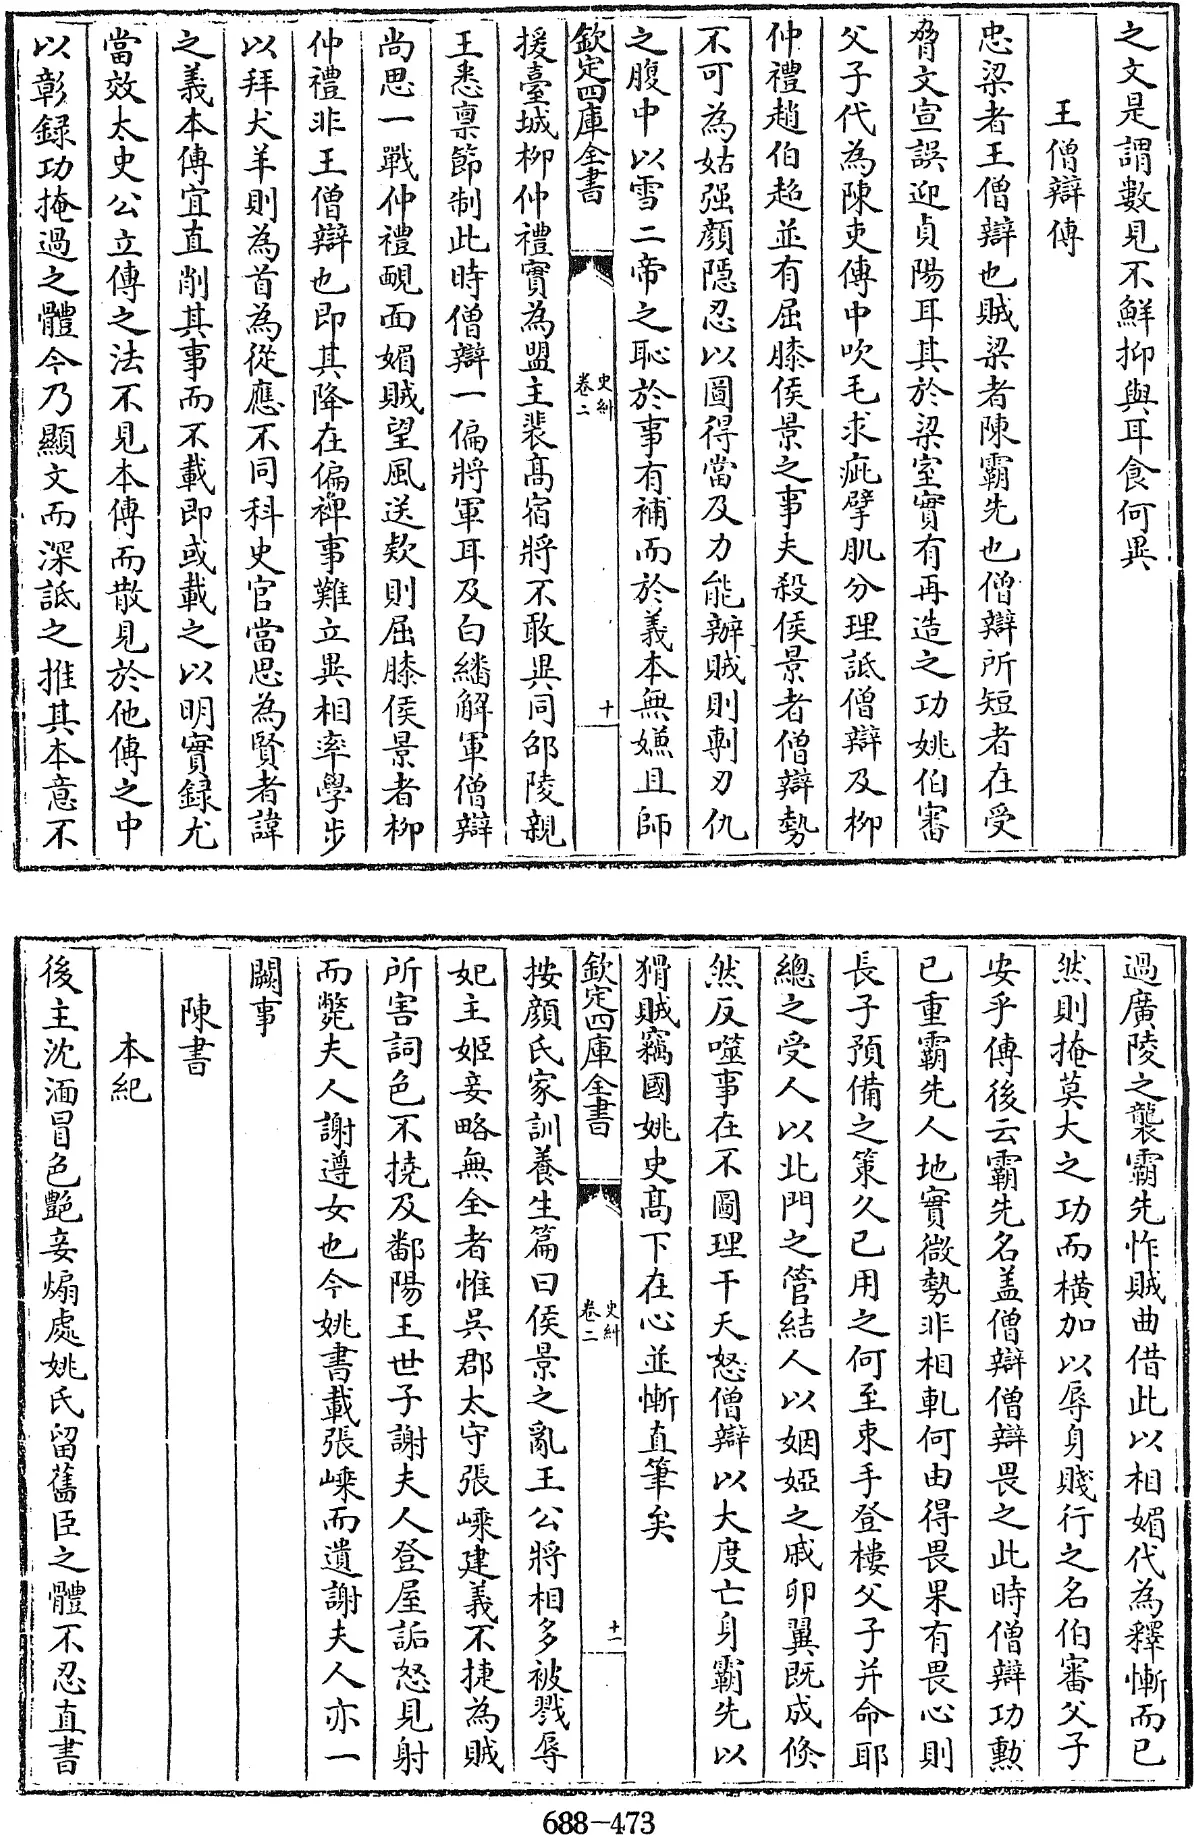 之文是謂數見不鮮抑與耳食何異
王僧辯傳
忠梁者王僧辯也賊梁者陳霸先也僧辯所短者在受
脅文宣誤迎貞陽耳其於梁室實有再造之功姚伯審
父子代為陳吏傳中吹毛求疵擘肌分理詆僧辯及柳
仲禮趙伯超並有屈膝侯景之事夫殺侯景者僧辯勢
不可為姑强顔隱忍以圖得當及力能辦賊則剚刃仇
之腹中以雪二帝之恥於事有補而於義本無嫌且師
欽定四庫全書
史糾
卷二
十
援臺城柳仲禮實為盟主裴髙宿將不敢異同邵陵親
王悉禀節制此時僧辯一偏將軍耳及白繙解軍僧辯
尚思一戰仲禮靦面媚賊望風送欵則屈膝侯景者柳
仲禮非王僧辯也即其降在偏裨事難立異相率學步
以拜犬羊則為首為從應不同科史官當思為賢者諱
之義本傳宜直削其事而不載即或載之以明實録尤
當效太史公立傳之法不見本傳而散見於他傳之中
以彰録功掩過之體今乃顯文而深詆之推其本意不
過廣陵之襲霸先怍賊曲借此以相媚代為釋慚而已
然則掩莫大之功而横加以辱身賤行之名伯審父子
安乎傳後云霸先名盖僧辯僧辯畏之此時僧辯功勲
已重霸先人地實微勢非相軋何由得畏果有畏心則
長子預備之策久已用之何至束手登樓父子并命耶
總之受人以北門之管結人以姻婭之戚卵翼既成倐
然反噬事在不圖理干天怒僧辯以大度亡身霸先以
猾賊竊國姚史髙下在心並慚直筆矣
欽定四庫全書
史糾
卷二
十一
按顔氏家訓養生篇曰侯景之亂王公將相多被戮辱
妃主姬妾略無全者惟吳郡太守張嵊建義不捷為賊
所害詞色不撓及鄱陽王世子謝夫人登屋詬怒見射
而斃夫人謝遵女也今姚書載張嵊而遺謝夫人亦一
闕事
陳書
本紀
後主沈湎冒色艶妾煽處姚氏留舊臣之體不忍直書
688-473